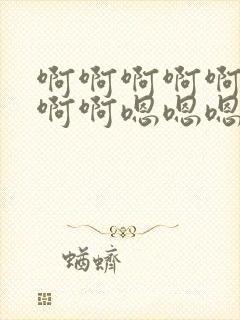 啊啊啊啊啊
啊啊嗯嗯嗯
蝤蠐